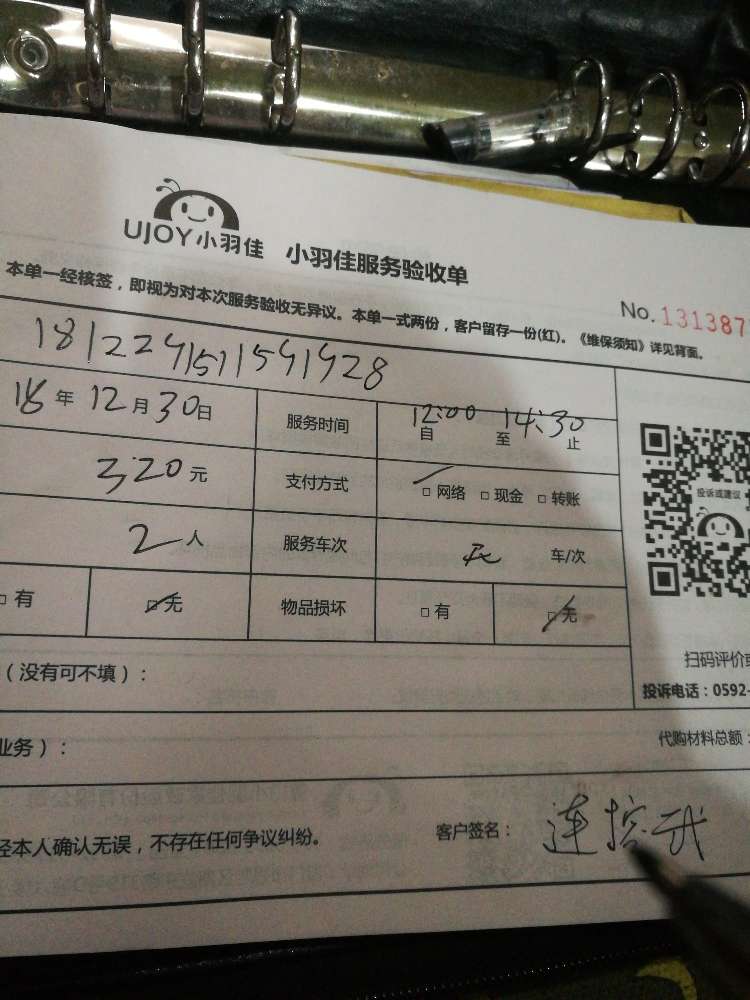 UJOY小羽佳 小羽佳服务验收单
No.131387
本单一经核签，即视为对本次服务验收无异议。本单一式两份，客户留存一份(红)。《维保须知》详见背面。
18年12月30日 服务时间 12:00自 至14:30止
320元 支付方式 □网络 □现金 □转账
2人 服务车次 无 车/次
□有 □无 物品损坏 □有 □无
投诉或建议
扫码评价
（没有可不填）：
投诉电话：0592-
业务）：
代购材料总额：
经本人确认无误，不存在任何争议纠纷。 客户签名：